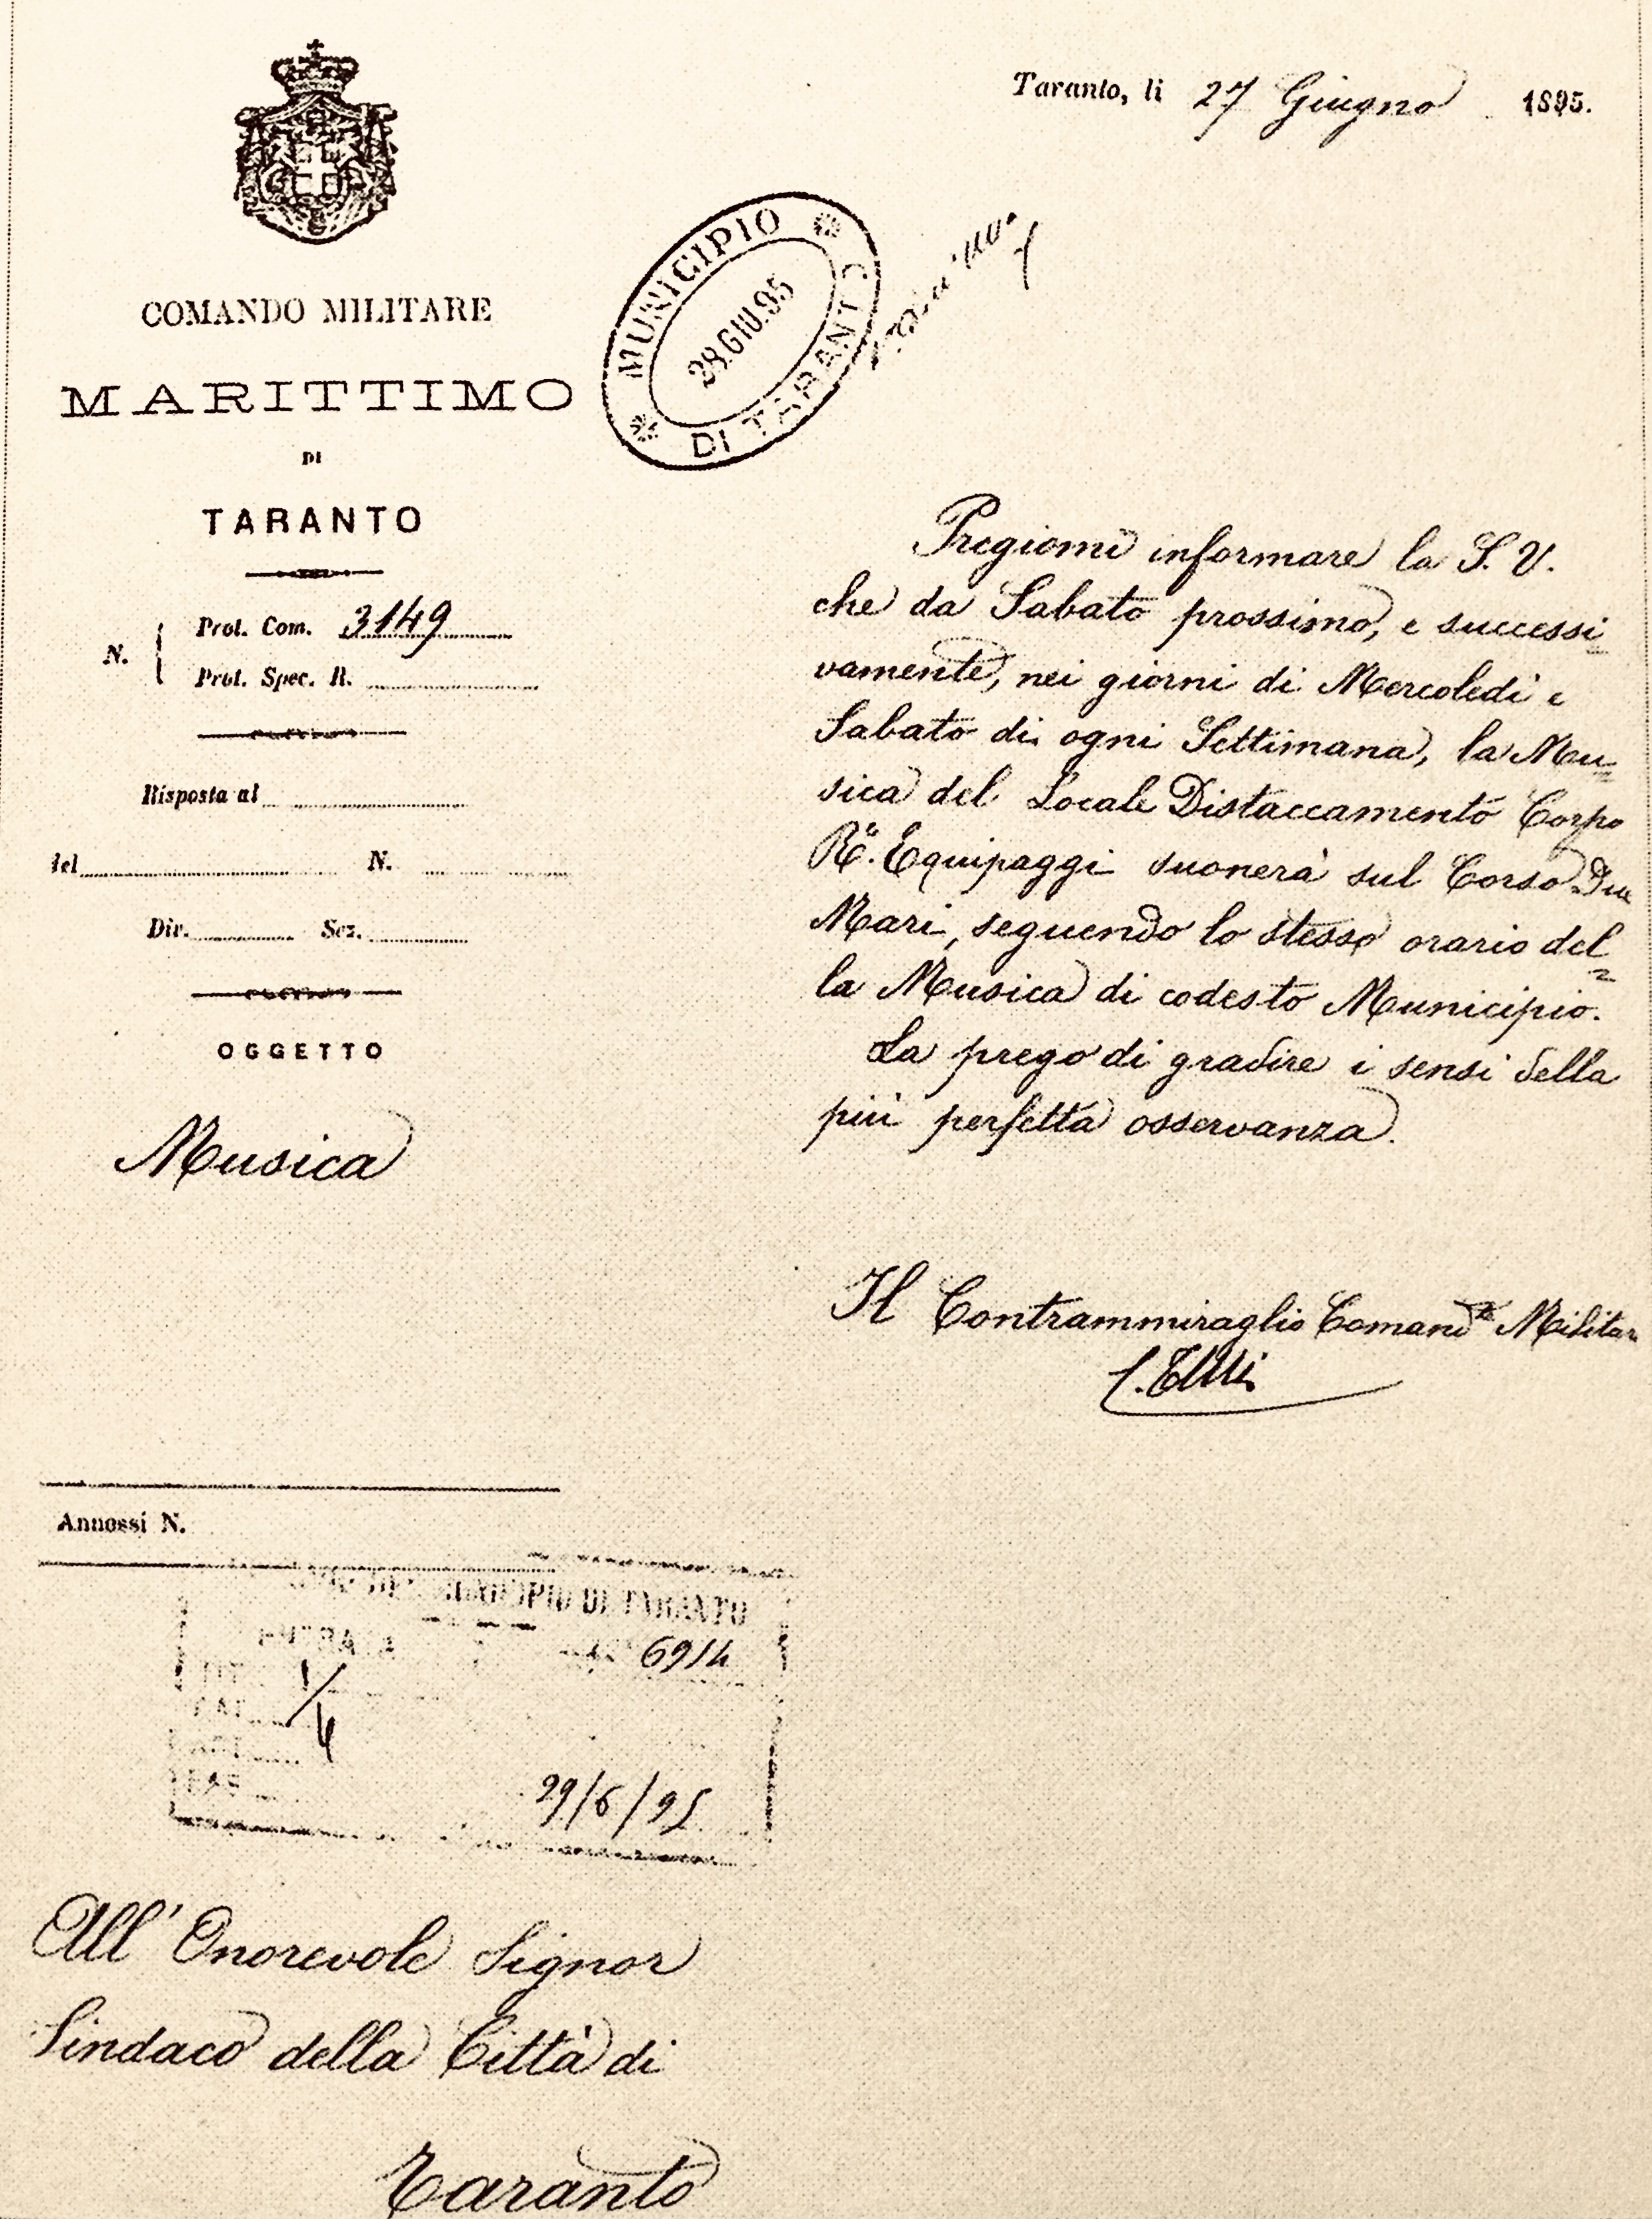 Taranto, li 27 Giugno 1895.
COMANDO MILITARE
MARITTIMO
DI
TARANTO
N. Prot. Com. 3149
Prot. Spec. R.
Risposta al
del N.
Dir. Sez.
OGGETTO
Musica
MUNICIPIO
DI TARANTO
GIU.95
Pregiomi informare la S. V.
che da Sabato prossimo, e successi
vamente, nei giorni di Mercoledì e
Sabato di ogni Settimana, la Mu=
sica del Locale Distaccamento Corpo
Re. Equipaggi suonerà sul Corso Due
Mari, seguendo lo stesso orario del=
la Musica di codesto Municipio.
La prego di gradire i sensi della
più perfetta osservanza.
Il Contrammiraglio Comand.te Militar
Annessi N.
MUNICIPIO DI TARANTO
6914
CAT
29/6/95
All' Onorevole Signor
Sindaco della Città di
Taranto